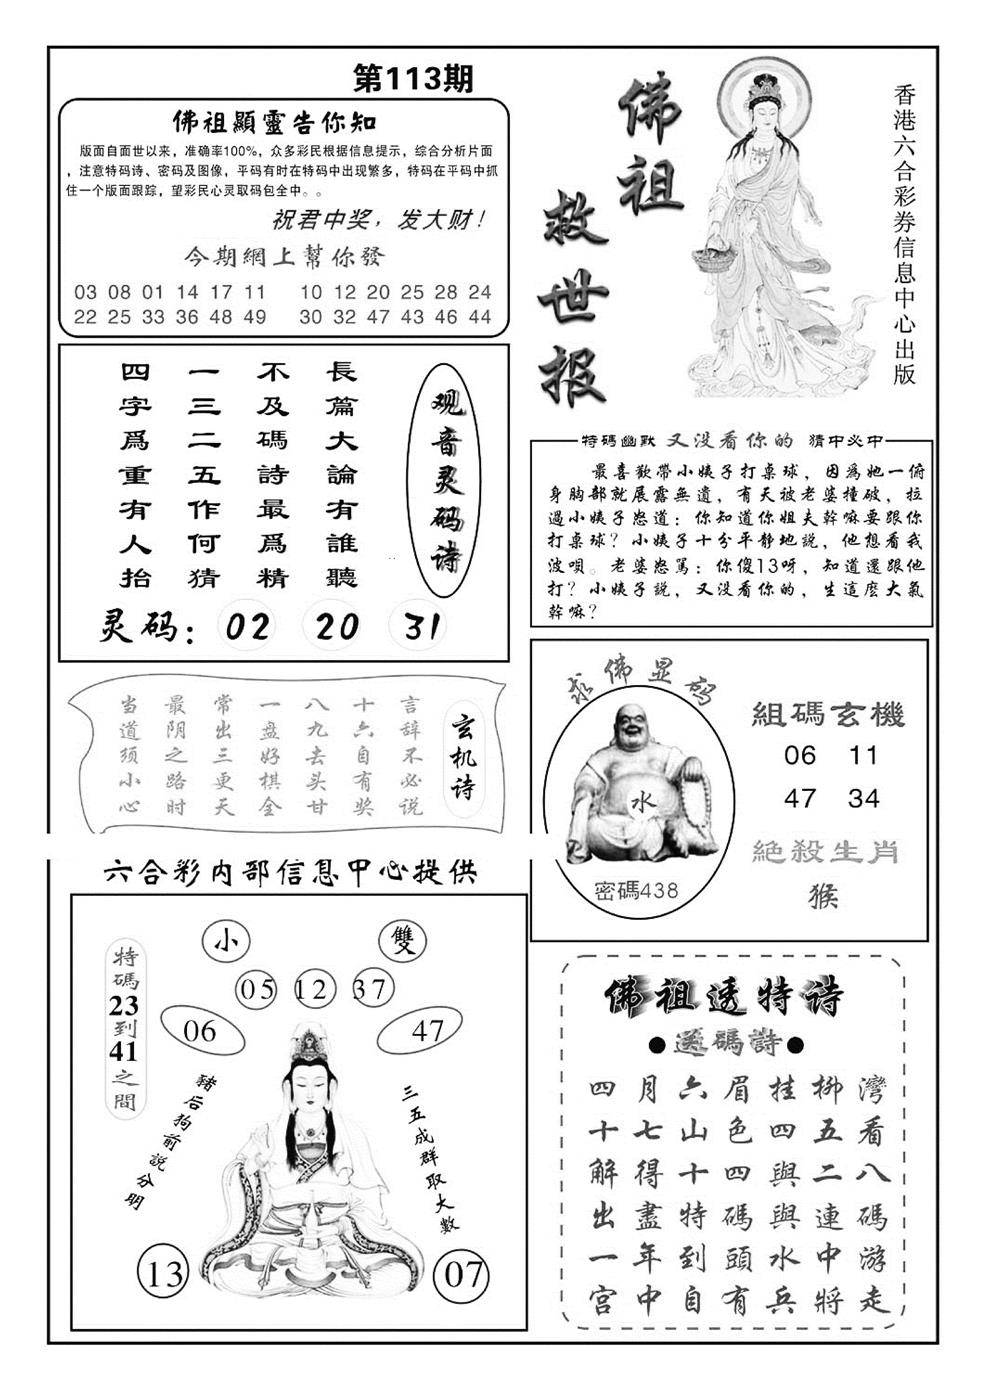 第113期
佛祖顯靈告你知
版面自面世以来，准确率100%，众多彩民根据信息提示，综合分析片面
，注意特码诗、密码及图像，平码有时在特码中出现繁多，特码在平码中抓
住一个版面跟踪，望彩民心灵取码包全中。。
祝君中奖，发大财！
今期網上幫你發
03 08 01 14 17 11 10 12 20 25 28 24
22 25 33 36 48 49 30 32 47 43 46 44
佛祖
救世报
香港六合彩券信息中心出版
观音灵码诗
長篇大論有誰聽
不及碼詩最爲精
一三二五作何猜
四字爲重有人抬
灵码： 02 20 31
特碼幽默 又没看你的 猜中必中
最喜歡帶小姨子打桌球，因爲她一俯
身胸部就展露無遺，有天被老婆撞破，拉
過小姨子怒道：你知道你姐夫幹嘛要跟你
打桌球？小姨子十分平静地説，他想看我
波唄。老婆怒罵：你傻13呀，知道還跟他
打？小姨子説，又没看你的，生這麽大氣
幹嘛？
玄机诗
言辞不必说
十六自有奖
八九去头甘
一盘好棋全
常出三更天
最阴之路时
当道须小心
求佛显码
水
密碼438
組碼玄機
06 11
47 34
絶殺生肖
猴
六合彩内部信息中心提供
小 雙
05 12 37
06 47
特碼23到41之間
豬后狗前説分明
三五成群取大數
13 07
佛祖透特诗
送碼詩
灣看八碼游走
柳五二連中將
挂四與與水兵
眉色四碼頭有
六山十特到自
月七得盡年中
四十解出一宫